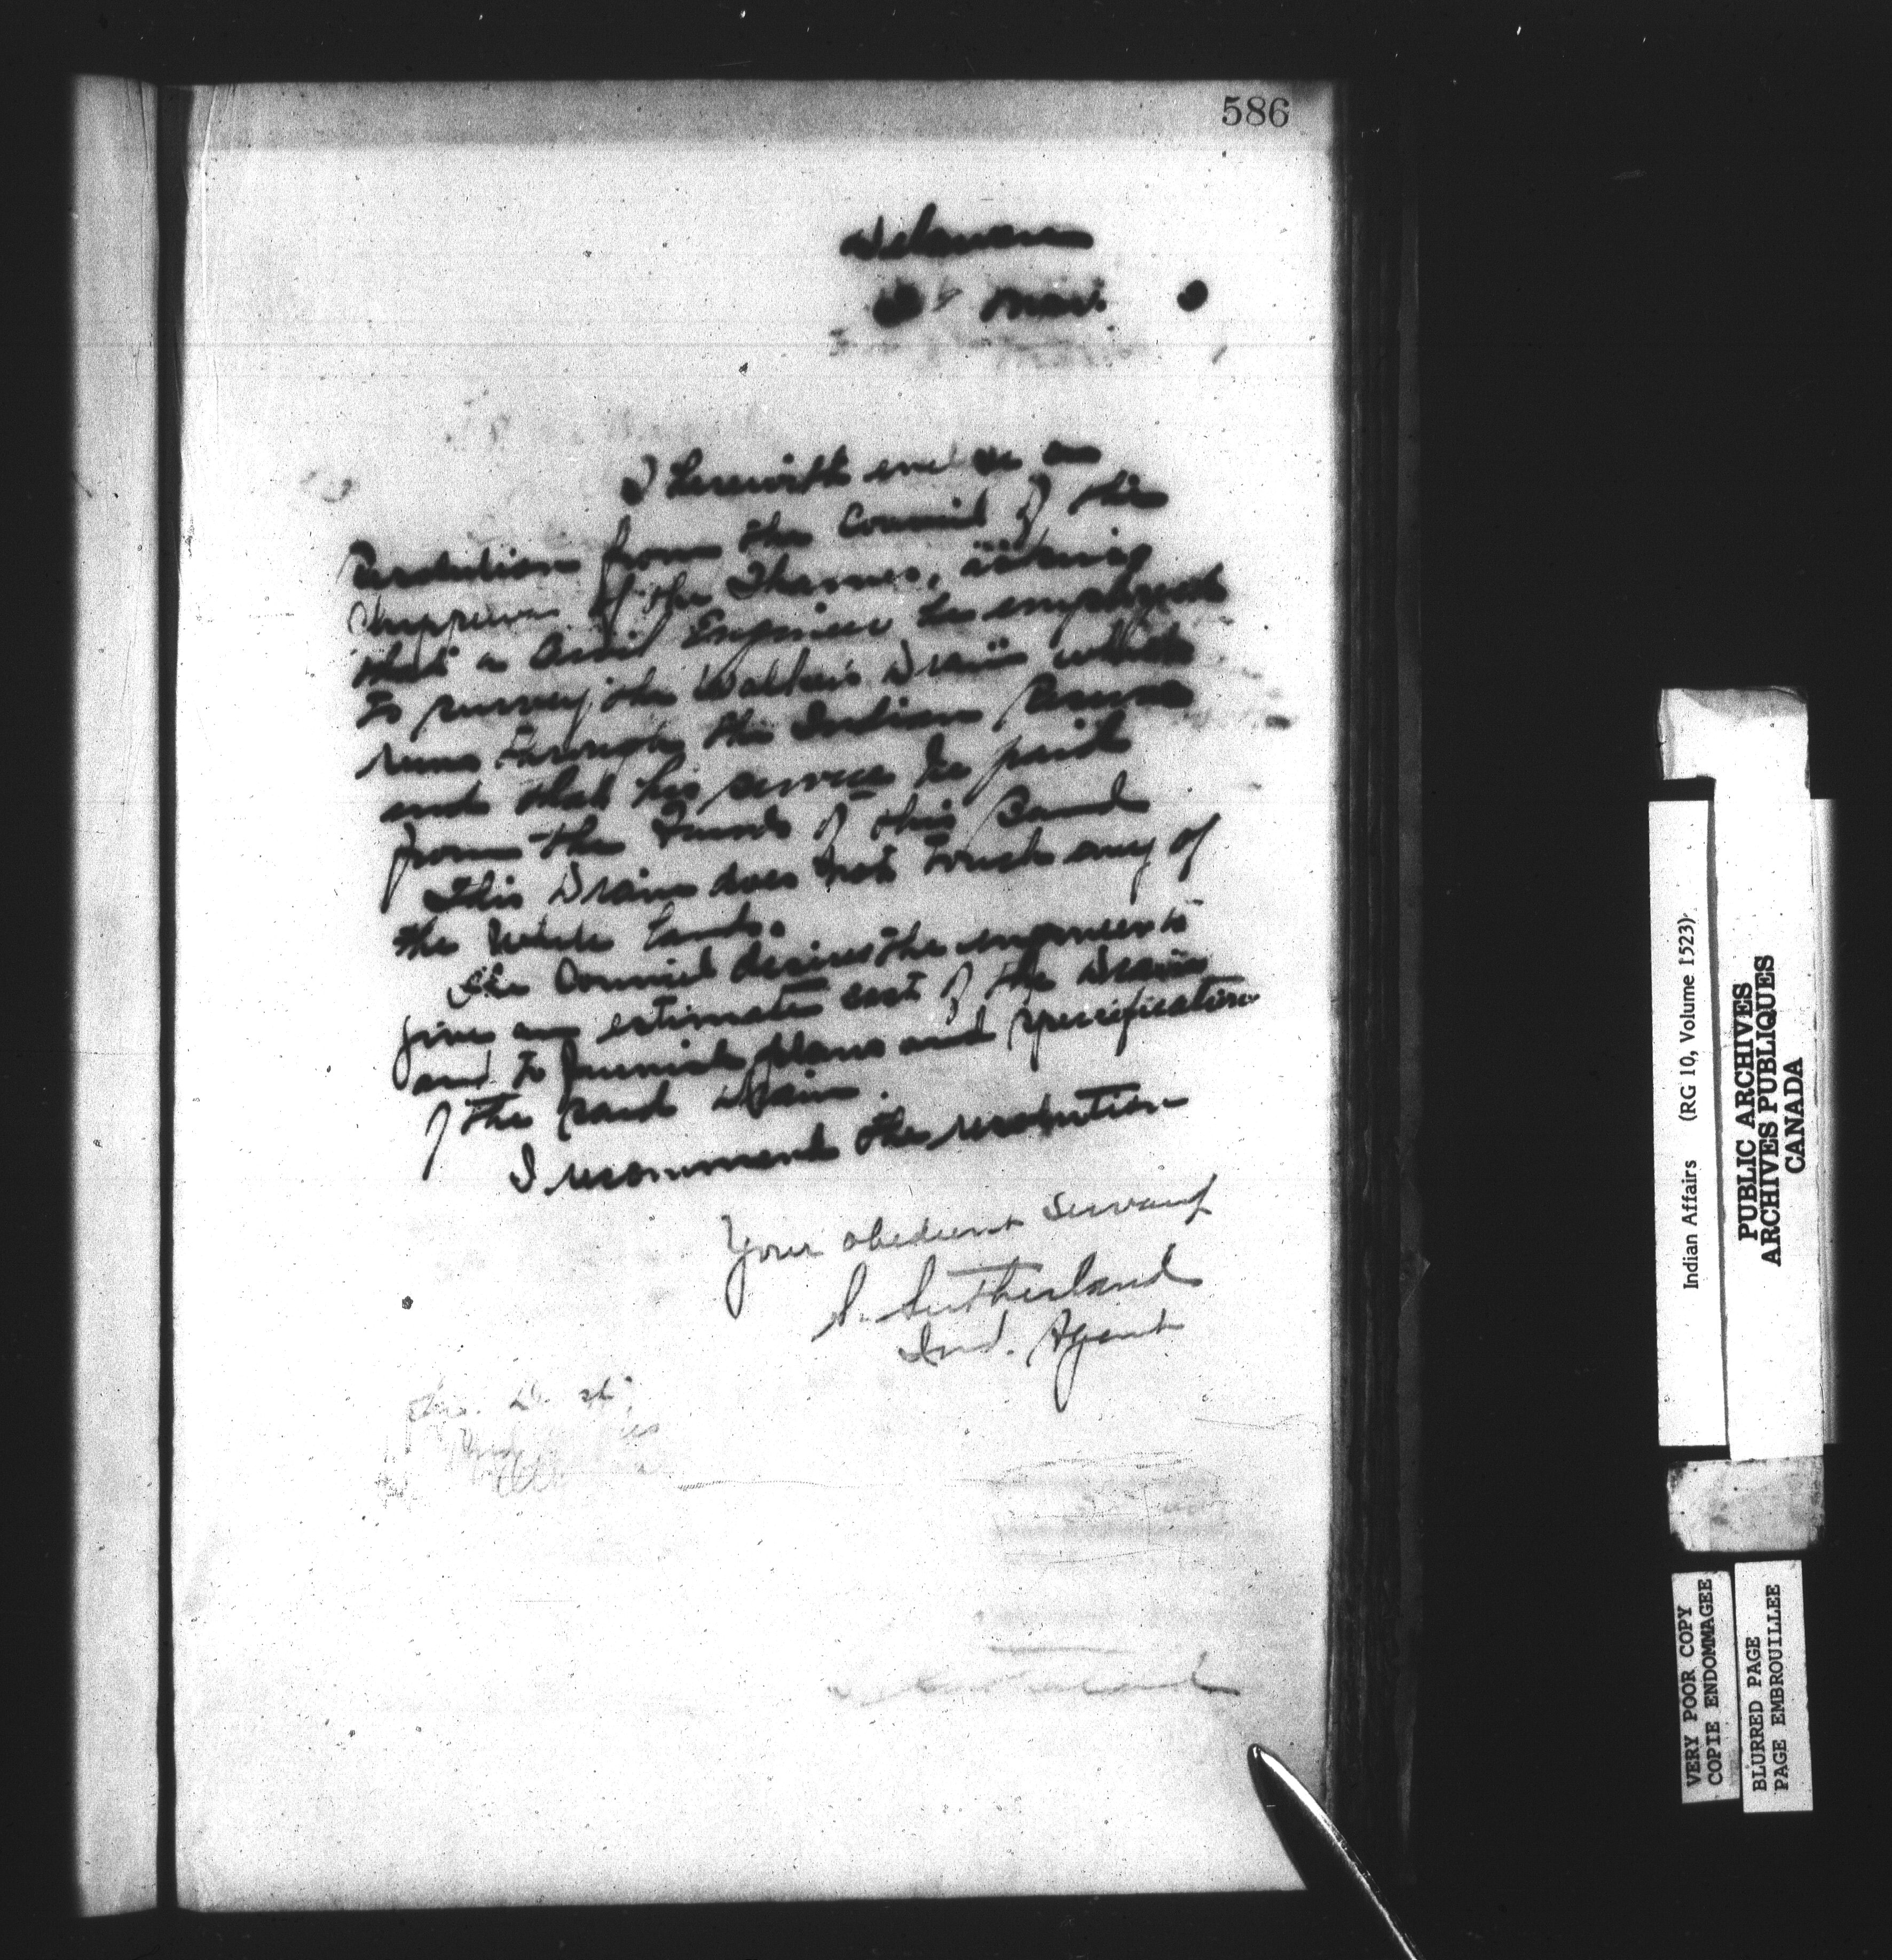 586
Delaware
Nov.
I herewith enclose a
Resolution from the Council of the
Chippewas of the Thames, asking
that a Civil Engineer be employed
to survey the Walker's Drain which
runs through the Indian Reserve
and that his services be paid
from the Funds of this Band
This Drain does not touch any of
the White Lands.
The Council desires the engineer to
give an estimate cost of the Drain
and to furnish plans and specification
of the said Drain.
I recommend the resolution
Your obedient Servant
S. Sutherland
Ind. Agent
Indian Affairs (RG 10, Volume 1523)
PUBLIC ARCHIVES
ARCHIVES PUBLIQUES
CANADA
VERY POOR COPY
COPIE ENDOMMAGEE
BLURRED PAGE
PAGE EMBROUILLEE